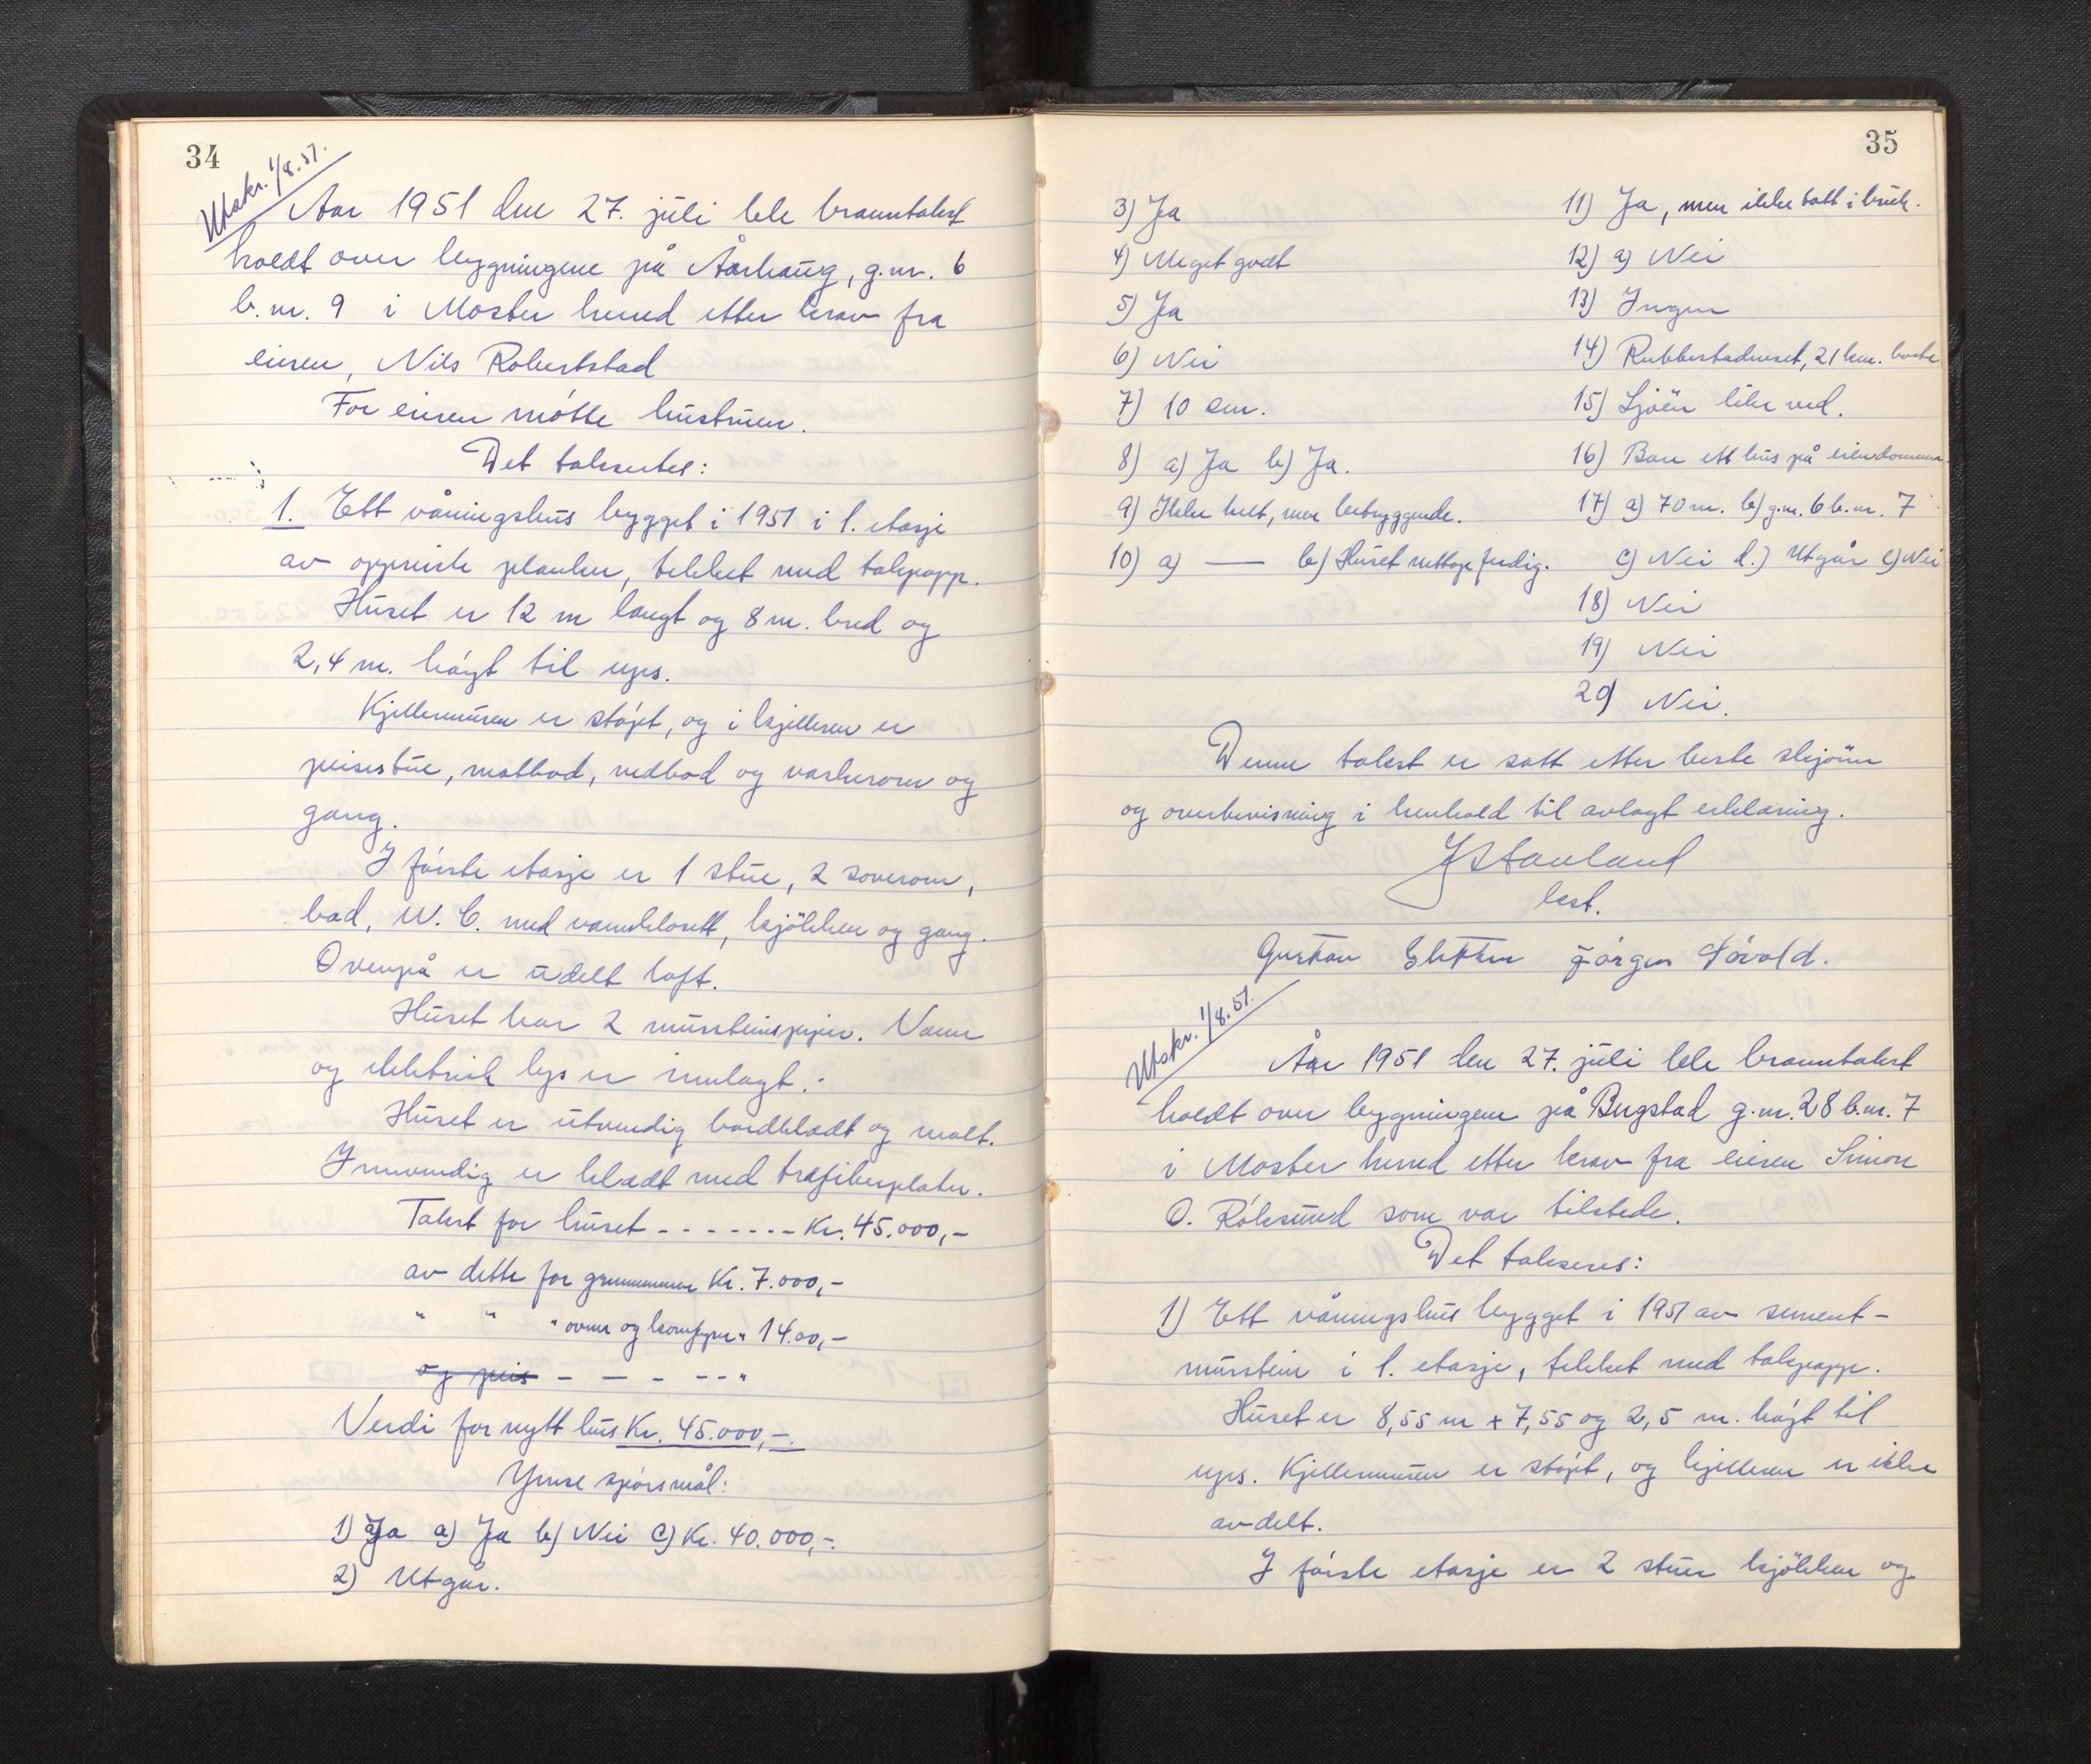 34
Utskr. 1/8.51.
Aar 1951 den 27. juli ble branntakst
holdt over bygningene på Aarhaug, g.nr. 6
b.nr. 9 i Moster herred etter krav fra
eieren, Nils Robertstad
For eieren møtte hustruen.
Det taksertes:
1. Ett våningshus bygget i 1951 i 1. etasje
av oppreiste planker, tekket med takpapp.
Huset er 12 m langt og 8 m. bred og
2,4 m. høgt til ups.
Kjellermuren er støpt, og i kjelleren er
peisestue, matbod, vedbod og vaskerom og
gang.
I første etasje er 1 stue, 2 soverom,
bad, W.C. med vannklosett, kjökken og gang.
Ovenpå er udelt loft.
Huset har 2 mursteinspiper. Vann
og elektrisk lys er innlagt.
Huset er utvendig bordkledt og malt.
Innvendig er kledt med trefiberplater.
Takst for huset - - - - - - - Kr. 45.000,-
av dette for grunnmur Kr. 7.000,-
" " " ovner og komfyrer " 14.00,-
og peis - - - - - "
Verdi for nytt hus Kr. 45.000,-.
Ymse spørsmål:
1) Ja a) Ja b) Nei c) Kr. 40.000,-.
2) Utgår.
35
3) Ja
4) Meget godt
5) Ja
6) Nei
7) 10 cm.
8) a) Ja b) Ja.
9) Ikke helt, men betryggende.
10) a) — b) Huset nettopp ferdig.
11) Ja, men ikke tatt i bruk.
12) a) Nei
13) Ingen
14) Rubbestadneset, 21 km. borte
15) Sjöen like ved.
16) Bare ett hus på eiendommen.
17) a) 70 m. b) g.nr. 6 b.nr. 7
c) Nei d.) Utgår e) Nei
18) Nei
19) Nei
20) Nei.
Denne takst er satt etter beste skjönn
og overbevisning i henhold til avlagt erklæring.
J Stauland
lest.
Gustav Sletten Jørgen Løvold.
Utskr. 1/8.51.
Åar 1951 den 27. juli ble branntakst
holdt over bygningene på Bergstad g.nr. 28 b.nr. 7
i Moster herred etter krav fra eieren Simon
O. Røksund som var tilstede.
Det takseres:
1) Ett våningshus bygget i 1951 av sement-
murstein i 1. etasje, tekket med takpapp.
Huset er 8,55 m x 7,55 og 2,5 m. høgt til
ups. Kjellermuren er støpt, og kjelleren er ikke
avdelt.
I første etasje er 2 stuer kjökken og